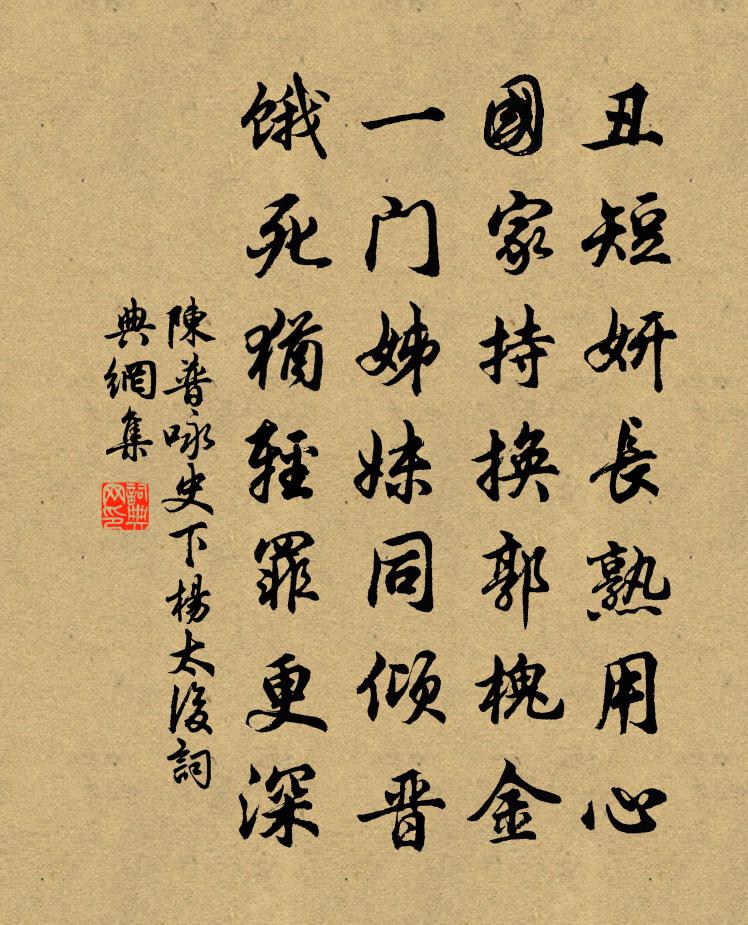 丑短妍長熟用心
國家持換郭槐金
一门姊妹同倾晋
饿死猶輕罪更深
陳普咏史下楊太後詞
典網集
詞典
网印